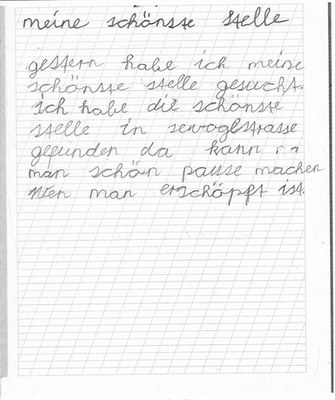 meine schönste stelle
gestern habe ich meine
schönste stelle gesucht.
ich habe die schönste
stelle in
gefunden da kann
man schön pause machen
wen man erschöpft ist.